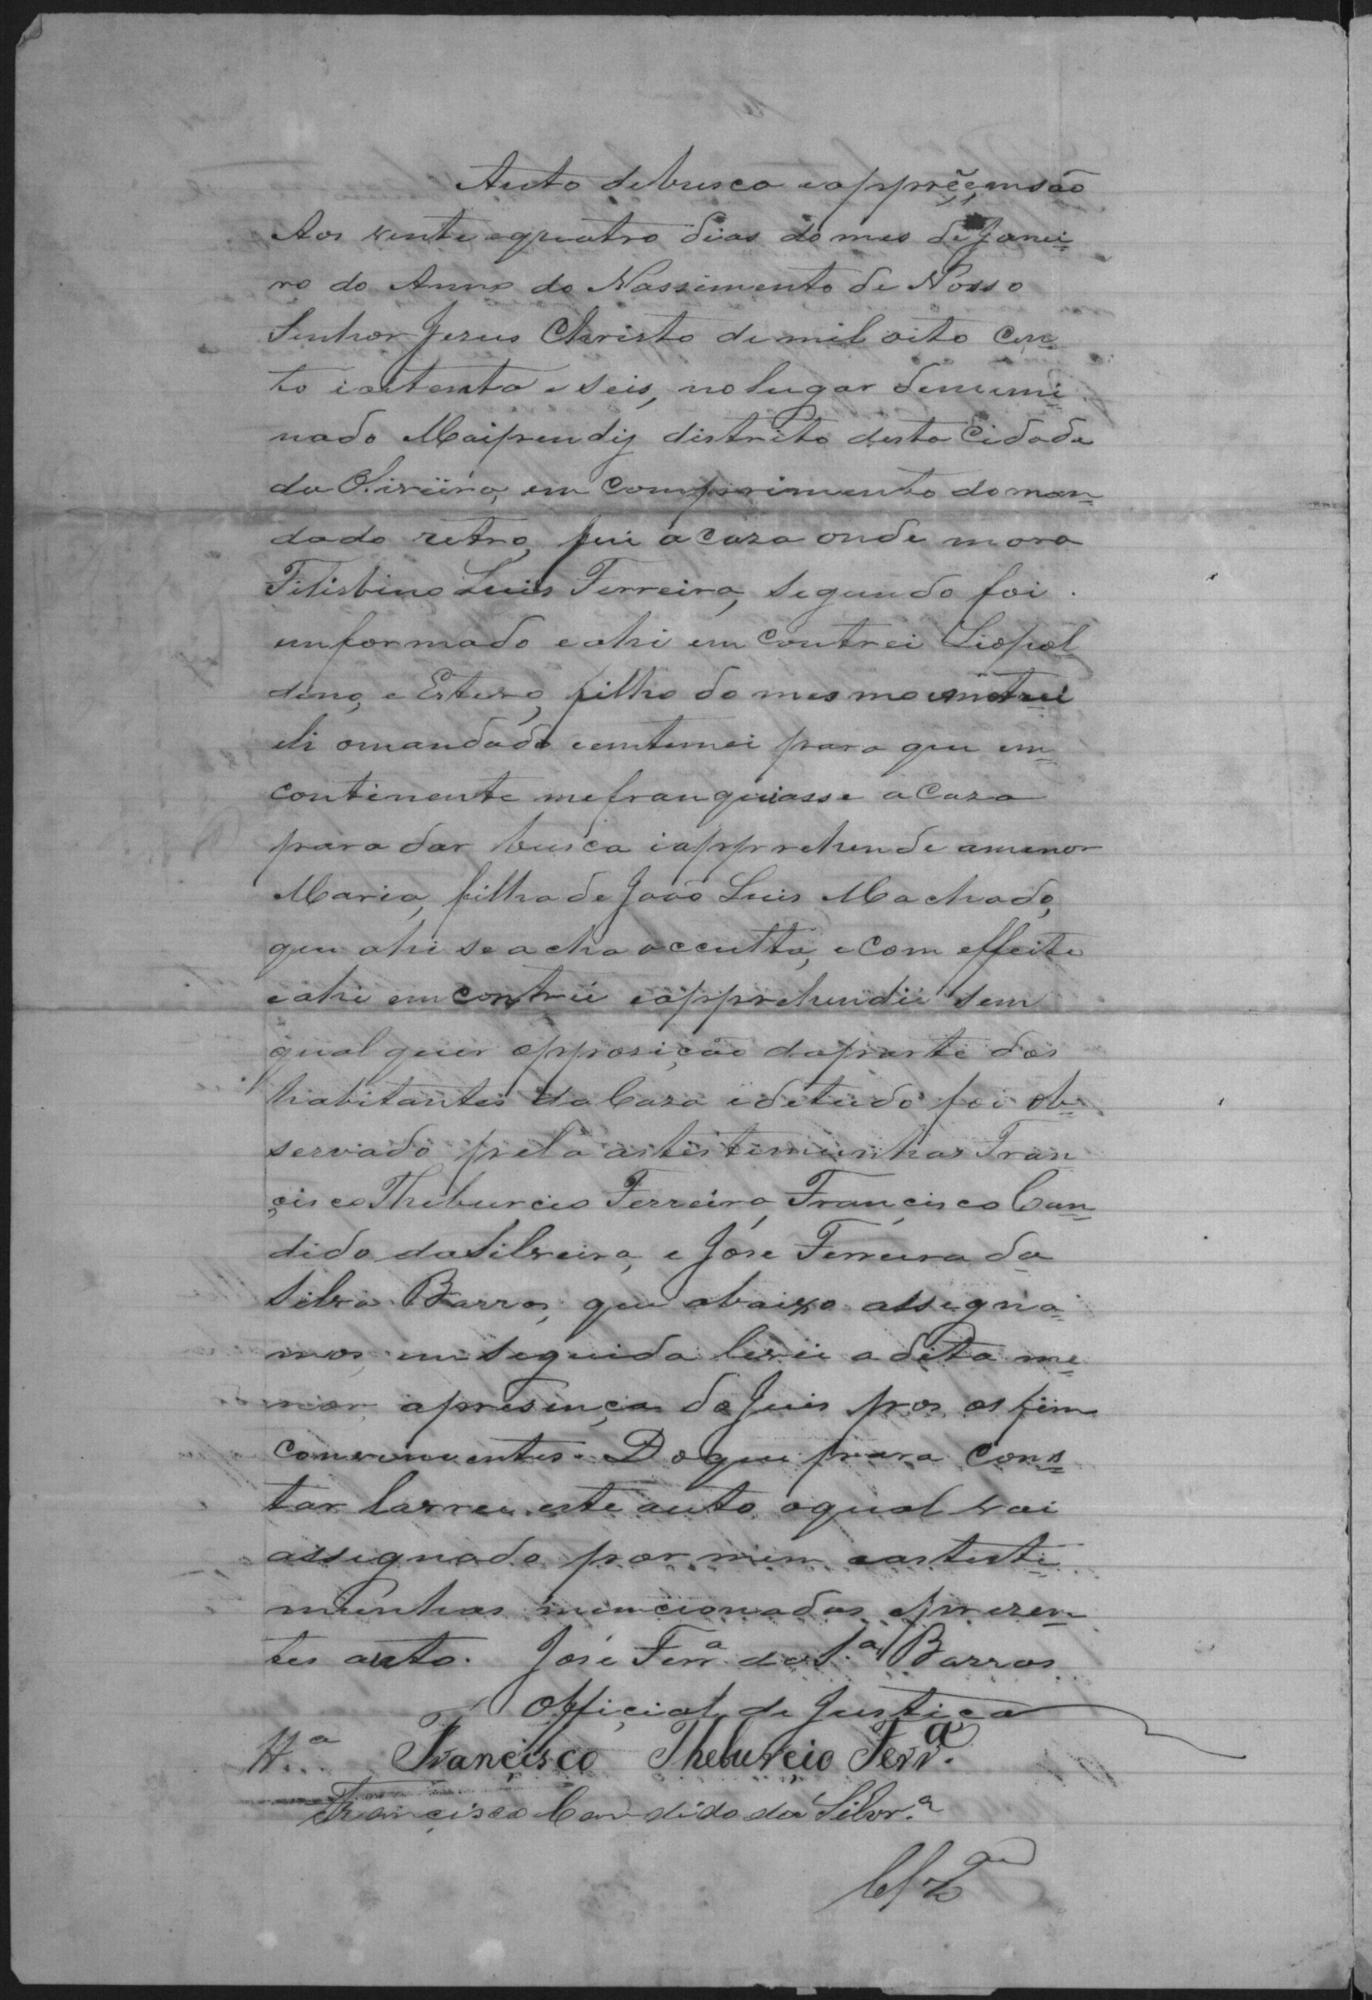 Auto debusca eapprẽensão
Aos vente equatro dias do mes de Janei=
ro do Anno do Nassimento de Nosso
Senhor Jesus Christo de mil oito cen
to ioitenta e seis, no lugar denumi=
nado distrito desta Cidade
da Oliviira, em comprimento do man=
dado retro, fui a caza onde mora
Filisbino Luis Ferreira, segundo foi
unformado eahi em contrei Liopol
dino, e Estevo, filho do mesmo
eli omandado eentemei para que in=
continente mefranquiasse a Caza
para dar busca iapprehende amenor
Maria, filha de João Luis Machado,
que ahi se acha occulta, e com effeito
eahi em contrei eapprehendii sem
qual quer opposição daparte dos
habitantes da Caza edetudo foi ob=
servado pela astestemunhas Fran
çisco Theburcio Ferreira, Françisco Can=
dido daSilveira, e José Ferreira da
Silva Barros, que abaixo assegna=
mos, em seguida levei a dita me=
nor apresença do Juis pros os fim
convinientes. Do que para cons=
tar lavrei este auto, oqual vai
assegnado por mim eastiste=
munhas mencionadas eprezen=
tes auto. José Ferrª da Sª Barros
Offiçial de Justiça
Françisco Theburçio Ferrª.
Françisco Candido da Silvrª